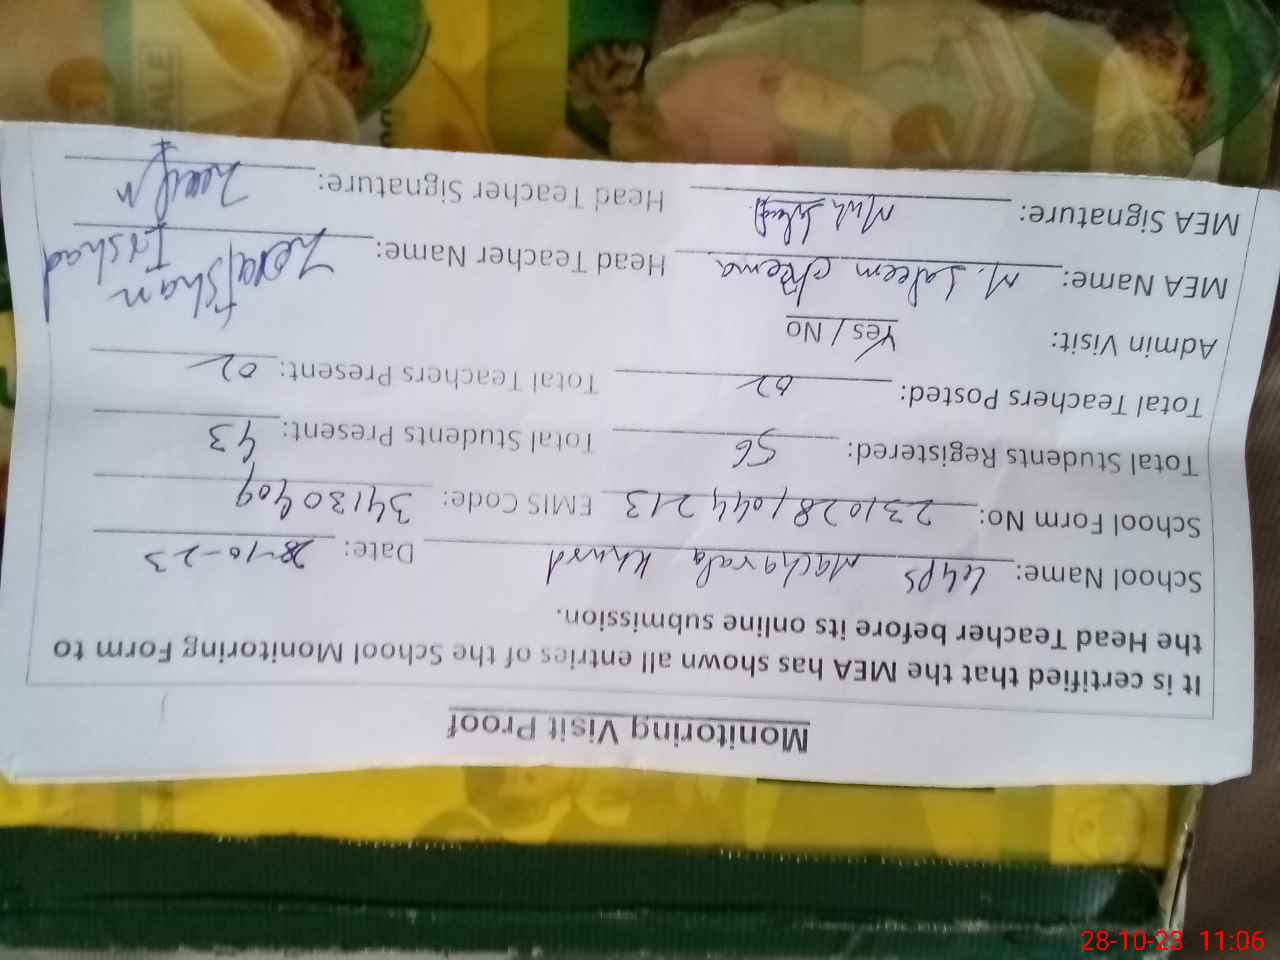 Monitoring Visit Proof
It is certified that the MEA has shown all entries of the School Monitoring Form to
the Head Teacher before its online submission.
School Name: Macharala Khurd Date: 28-10-23
School Form No: 2310281044213 EMIS Code: 34130409
Total Students Registered: 56 Total Students Present: 43
Total Teachers Posted: 02 Total Teachers Present: 02
Admin Visit: Yes / No
MEA Name: M. Saleem Cheema Head Teacher Name: Zerafshan
Irshad
MEA Signature: Head Teacher Signature:
28-10-23 11:06